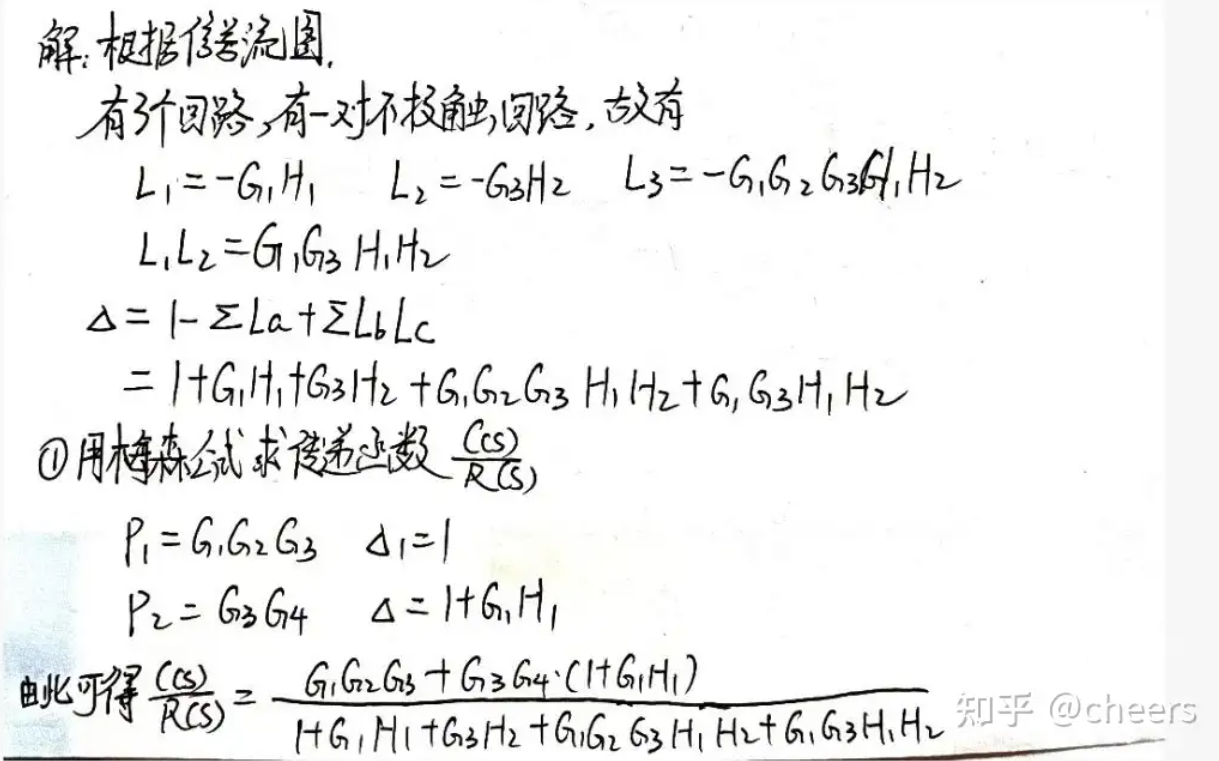 解:根据信号流图,
有3个回路,有一对不接触回路,故有
L₁=-G₁H₁ L₂=-G₃H₂ L₃=-G₁G₂G₃H₁H₂
L₁L₂=G₁G₃H₁H₂
Δ=1-ΣLa+ΣLbLc
=1+G₁H₁+G₃H₂+G₁G₂G₃H₁H₂+G₁G₃H₁H₂
①用梅森公式求传递函数 C(s)/R(s)
P₁=G₁G₂G₃ Δ₁=1
P₂=G₃G₄ Δ=1+G₁H₁
由此可得 C(s)/R(s) = G₁G₂G₃+G₃G₄·(1+G₁H₁) / 1+G₁H₁+G₃H₂+G₁G₂G₃H₁H₂+G₁G₃H₁H₂
知乎 @cheers